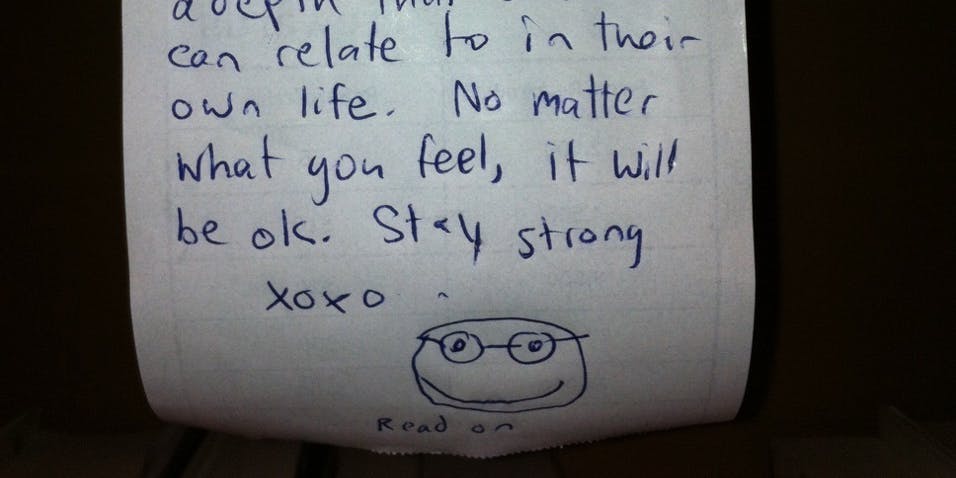 a depth that
can relate to in their
own life. No matter
what you feel, it will
be ok. Stay strong
xoxo
Read on